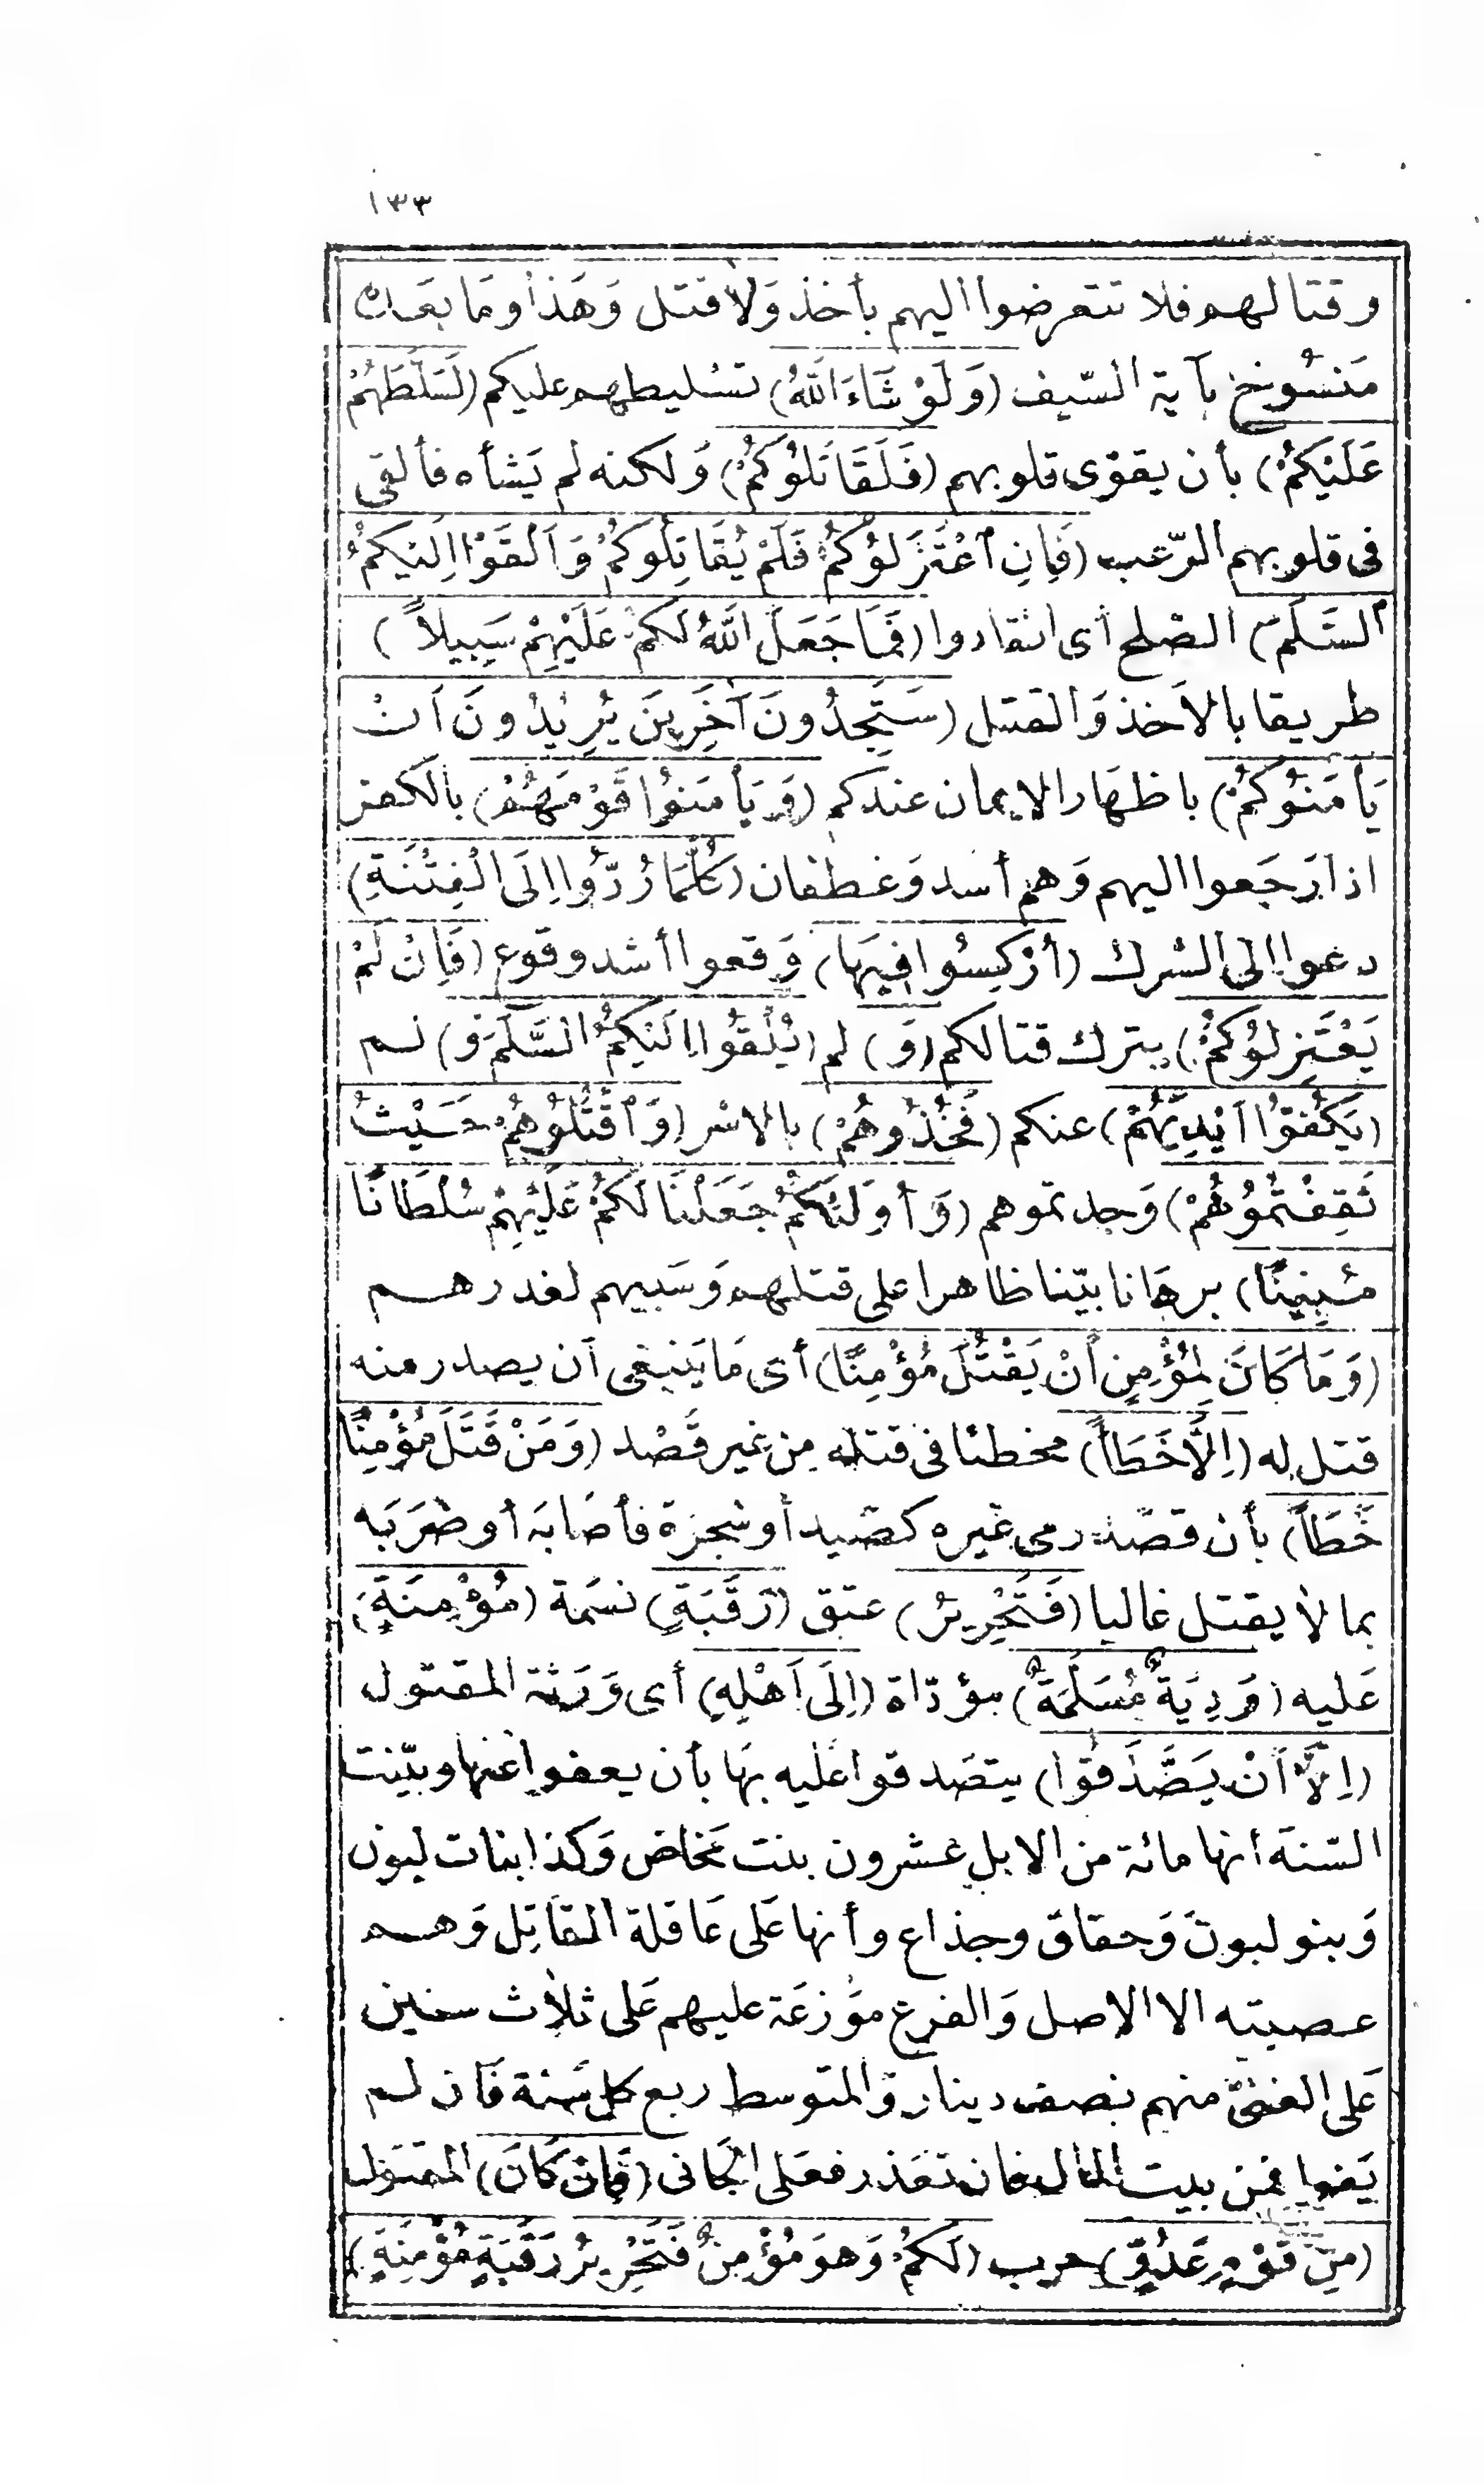 ١٣٣
وقتالهم فلا تتعرضوا اليهم بأخذ وَلا قتل وَهَذا وما بَعَده
مَنسُوخ بآية السّيف (وَلَوْ شَاءَ اللَّهُ) تسْليطهم عليكم (لَسَلَّطَهُمْ
عَلَيْكُمْ) بأن يقوّى قلوبهم (فَلَقَاتَلُوكُمْ) وَلكنه لم يَشأه فألقى
فى قلوبهم الرّعب (فَاِنِ ٱعْتَزَلُوكُمْ فَلَمْ يُقَاتِلُوكُمْ وَاَلْقَوْا اِلَيْكُمُ
السَّلَمَ) الصّلح أى انقادوا (فَمَا جَعَلَ اللَّهُ لَكُمْ عَلَيْهِمْ سَبِيلاً)
طريقا بالاَخذ وَالقتل (سَتَجِدُونَ آخَرِينَ يُرِيدُونَ اَنْ
يَأْمَنُوكُمْ) باظهَار الايمان عندكم (وَيَأْمَنُوا قَوْمَهُمْ) بالكفر
اذا رَجَعوا اليهم وَهم أسد وَغطفان (كُلَّمَا رُدُّوا اِلَى الْفِتْنَةِ)
دعوا الى الشرك (أُرْكِسُوا فِيهَا) وَقعوا أشد وقوع (فَاِنْ لَمْ
يَعْتَزِلُوكُمْ) بترك قتالكم (وَ) لم (يُلْقُوا اِلَيْكُمُ السَّلَمَ وَ) لم
(يَكُفُّوا اَيْدِيَهُمْ) عنكم (فَخُذُوهُمْ) بالاسْر (وَٱقْتُلُوهُمْ حَيْثُ
ثَقِفْتُمُوهُمْ) وَجدتموهم (وَأُولَئِكُمْ جَعَلْنَا لَكُمْ عَلَيْهِمْ سُلْطَانًا
مُبِينًا) برهَانا بيّنا ظاهرا على قتلهم وَسَبيهم لغدرهم
(وَمَا كَانَ لِمُؤْمِنٍ أَنْ يَقْتُلَ مُؤْمِنًا) أى مَا يَنبغى أن يصدر منه
قتل له (اِلَّا خَطَأً) مخطئا فى قتله مِن غير قَصْد (وَمَنْ قَتَلَ مُؤْمِنًا
خَطَأً) بأن قصَد رمى غيره كصَيد أو شجرة فأصَابَه أو ضرَبَه
بما لا يقتل غالبا (فَتَحْرِيرُ) عتق (رَقَبَةٍ) نسَمة (مُؤْمِنَةٍ)
عَليه (وَدِيَةٌ مُسَلَّمَةٌ) مؤدّاة (اِلَى اَهْلِهِ) أى وَرَثة المقتول
(اِلَّا اَنْ يَصَّدَّقُوا) يتصَدقوا عليه بهَا بأن يعفوا عنها وبيّنت
السّنة أنها مائة من الابل عشرون بنت مَخاض وَكذا بنات لبون
وَبنو لبون وَحقاق وجذاع وأنها عَلى عَاقلة القاتِل وَهم
عصبته الا الاصل وَالفرع موَزعَة عليهم عَلى ثلاث سنين
عَلى الغنىّ منهم نصف دينار وَالمتوسط ربع كل سَنة فَان لم
يَفوا فمن بيت المال فان تعَذر فعَلى الجَانى (فَاِنْ كَانَ) المقتول
(مِنْ قَوْمٍ عَدُوٍّ) حرب (لَكُمْ وَهوَ مُؤْمِنٌ فَتَحْرِيرُ رَقَبَةٍ مُؤْمِنَةٍ)